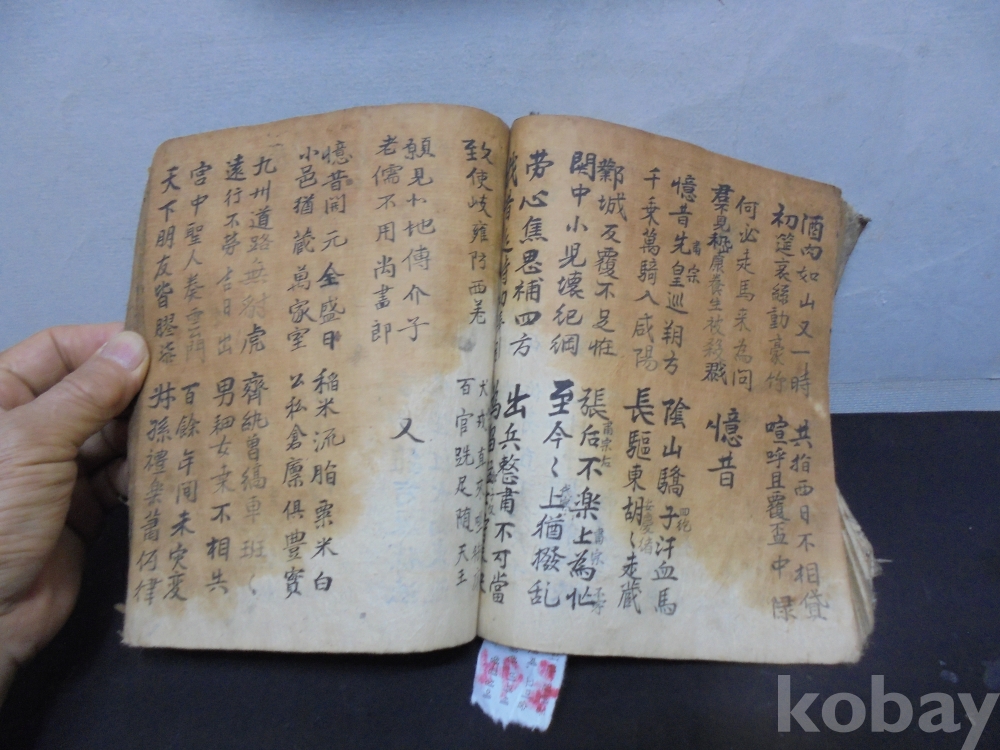 酒肉如山又一時
初筵哀絲動豪竹
共指西日不相貸
喧呼且覆盃中淥
何必走馬来為問
羣不見嵇康養生被殺戮
憶昔
憶昔先皇巡朔方
肅宗
千乗萬騎入咸陽
陰山驕子汗血馬
回紇
長驅東胡〻走蔵
鄴城反覆不足怪
関中小兒壞紀綱
張后不楽上為忙
肅宗后
肅宗
至今〻上猶撥乱
労心焦思補四方
出兵整肅不可當
致使岐雍防西羌
百官跣足随天王
願見北地傅介子
老儒不用尚書郎
又
憶昔開元全盛日
小邑猶蔵萬家室
稻米流脂粟米白
公私倉廩俱豊實
九州道路無豺虎
遠行不勞吉日出
齊紈魯縞車班〻
男耕女桒不相失
宮中聖人奏雲門
天下明友皆膠漆
百餘年间未灾変
叔孫禮楽蕭何律
kobay